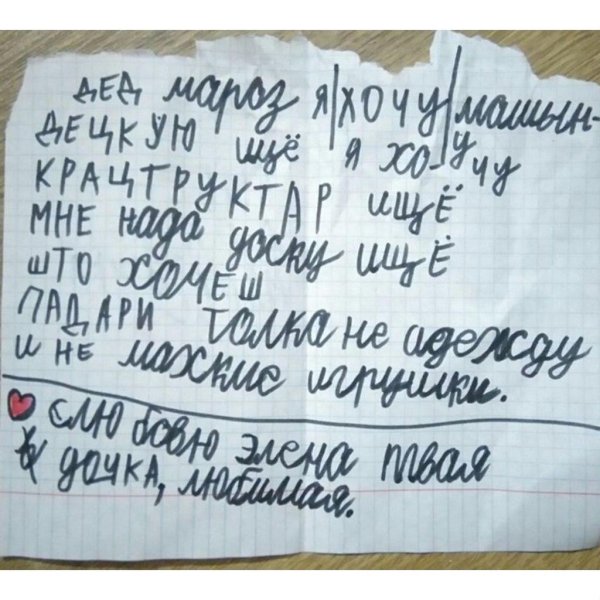 дед мароз я|хочу|машын-
децкую ищё я хо-учу
крацтруктар ищё
мне нада доску ищё
што хочеш
падари толка не адежду
и не махкие игрушки.
слюбовю элена твая
дочка, любимая.